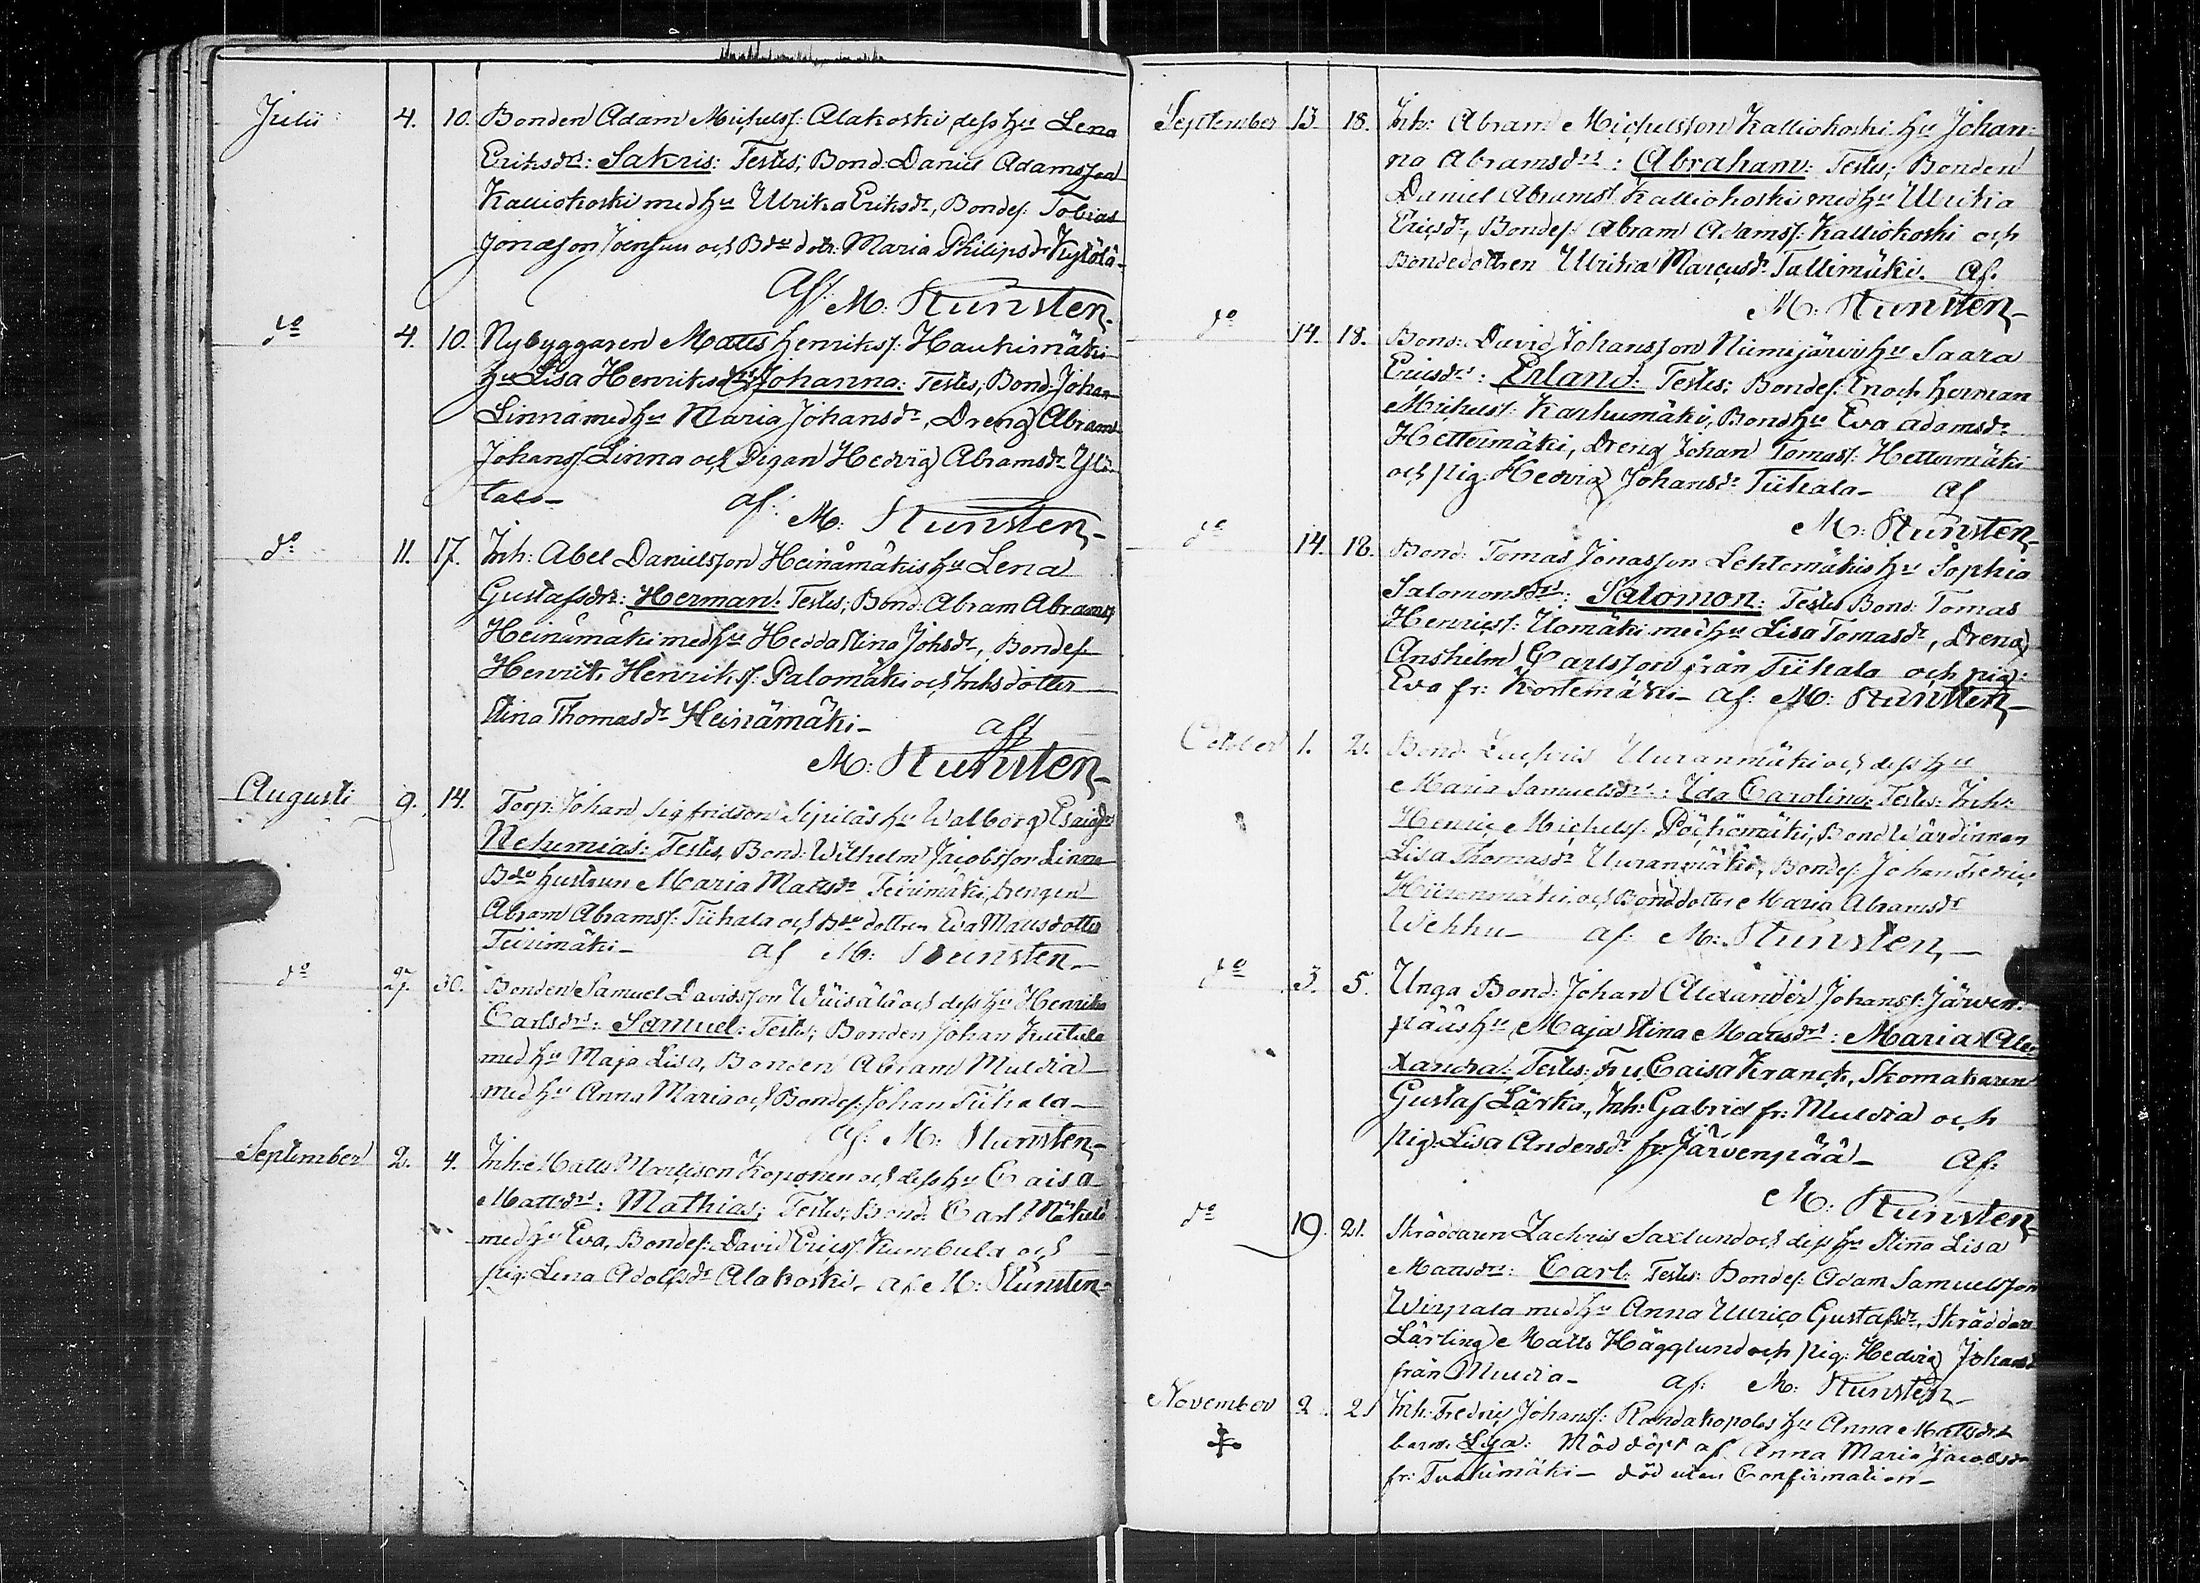 Julii 4. 10. Bonden Adam Michelss: Alakoski, dess hu Lena
Eriksdrs: Sakris: Testes; Bond. Daniel Adamsson
Kalliokoski med hu Ulrika Eriksdr, Bondes. Tobias
Jonasson Joensuu och Bde dotr: Maria Philipsdr Kytölä-
Af: M: Stunsten,
do 4. 10. Nybyggaren Matts Henrikss: Haukimäki
hu Lisa Henriksdrs: Johanna: Testes; Bond. Johan
Linna med hu Maria Johansdr, Dreng Abram
Johanss. Linna och Pigan Hedvig Abramsdr Ylö-
talo- af: M: Stunsten,-
do 11. 17. Inh: Abel Danielsson Heinämäkis hu Lena
Gustafsdrs: Herman: Testes; Bond: Abram Abramss
Heinämäki med hu Hedda Stina Johsdr, Bondes.
Henrik Henrikss: Palomäki och Inhs dotter
Stina Thomasdr Heinämäki- aff
M: Stunsten-
Augusti 9. 14. Torp: Johan Sigfridson Sipiläs hu Walborg Esaiædrs
Nehemias: Testes, Bond: Wilhelm Jacobsson Linna
Bde hustrun Maria Mattsdr Teirimäki, Drengen
Abram Abramss: Tiihala och Bde dottren Eva Mattsdotter
Teirimäki- af M: Stunsten-
do 27. 30. Bonden Samuel Davidsson Wiisälä och dess hu Henrika
Carlsdrs: Samuel: Testes; Bonden Johan Kuttula
med hu Maja Lisa, Bonden Abram Muldia
med hu Anna Maria och Bondes. Johan Tiihala-
Af: M: Stunsten-
September 2. 4. Inh: Matts Mattsson Koponen och dess hu Caisa
Mattsdrs: Mathias; Testes; Bond. Carl Mäkelä
med hu Eva, Bondes: David Ericss. Kumbula och
pig: Lena Adolfsdr Alakoski- af M: Stunsten-
September 13 18. Inh: Abram Michelsson Kalliokoski hu Johan-
na Abramsdrs: Abraham: Testes; Bonden
Daniel Abramss. Kalliokoski med hu Ulrika
Ericsdr, Bondes: Abram Adamss: Kalliokoski och
Bondedottren Ulrika Marcusdr Tallimäki. Af.
M: Stunsten-
do 14. 18. Bond: David Johansson Niemijärvi hu Saara
Ericsdrs: Erland: Testes; Bondes. Enoch Herman
Michelss: Karhumäki, Bond hu Eva Adamsdr
Hettemäki, Dreng Johan Tomass. Hettemäki
och pig: Hedvig Johansdr Tiihala- Af
M: Stunsten-
do 14. 18. Bond: Tomas Jonasson Lehtomäkis hu Sophia
Salomonsdrs: Salomon: Testes Bond: Tomas
Henricss: Uomäki med hu Lisa Tomasdr, Dreng
Anshelm Carlsson från Tiihala och pig:
Eva fr: Kortemäki- af: M: Stunsten-
October 1. 2. Bond. Zachris Uuranmäki och dess hu
Maria Samuelsdrs: Ida Carolina: Testes: Inh:
Henric Michelss: Pöchömäki, Bond Wärdinnan
Lisa Thomasdr Uuranmäki, Bondes: Johan Fredric
och Bonddotter Maria Abramsdr
Wehhu- af: M: Stunsten,-
do 3. 5. Unga Bond: Johan Alexander Johanss: Järven-
pääs hu Maja Stina Mattsdrs: Maria Alex-
xandra: Testes: Fru Caisa Kranck, Skomakaren
Gustaf Lärka, Inh: Gabriel fr: Muldia och
pig: Lisa Andersdr fr: Järvenpää- Af:
M: Stunsten
do 19. 21. Skräddaren Zachris Saxlund och dess hu Stina Lisa
Mattsdrs: Carl: Testes: Bondes: Adam Samuelsson
Wirpala med hu Anna Ullrica Gustafsdr, Skräddare
Lärling Matts Hägglund och pig: Hedvig Johansd
från Muldia- af: M: Stunsten-
November 2. 21 Inh: Fredric Johanss: Randakopolos hu Anna Mattsdrs
barn: Lisa: Nöd döpt af Anna Maria Jacobsdr
fr: Tuohimäki- död utan Confirmation-